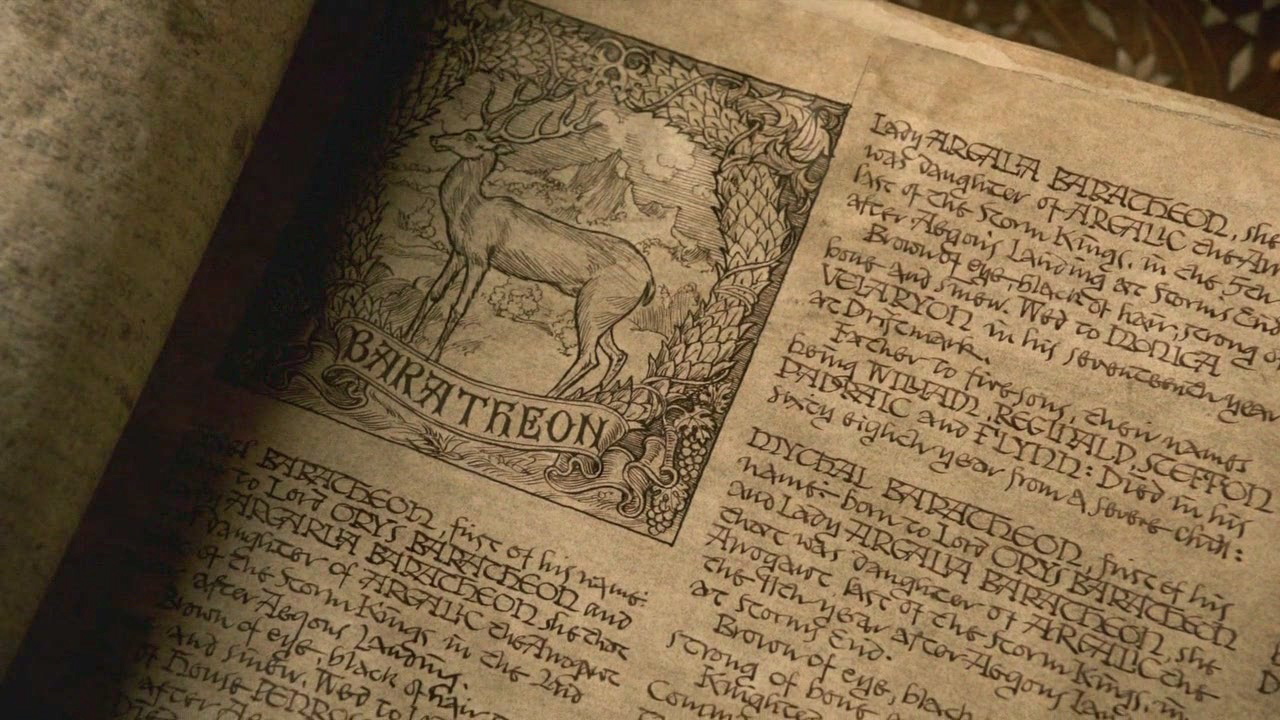 BARATHEON
BARATHEON, first of his name:
to Lord ORYS BARATHEON and
Lady ARGARIA BARATHEON, she that
Daughter of ARGALIC the Arrogant
of the Storm Kings, in the 2nd
after Aegons Landing.
Brown of eye, black of hair
and sinew. Wed to
of House PENROS
after Aegons
Died
Lady ARGALIA BARATHEON, she
was daughter of ARGALIC the Arr
last of the Storm Kings, in the 5th
after Aegons Landing at Storms End
Brown of eye–black of hair, strong of
bone and sinew. Wed to MONICA
VELARYON in his seventeenth year
at Driftmark.
Father to five sons, their names
being WILLIAM, REGINALD, STEFFON
PADRAIC and FLYNN: Died in his
sixty eighth year from a severe chill:
MYCHAL BARATHEON, first of his
name: born to Lord ORYS BARATHEON
and Lady ARGALIA BARATHEON, she
that was daughter of ARGALIC the
Arrogant, last of the Storm Kings, in
the 9th year after Aegons Land
at Storms End.
Brown of eye, black
strong of bone a
Knighted
Comm